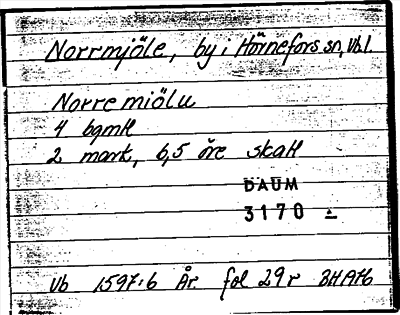 Norrmjöle, by i Hörnefors sn, Vbl.
Norremiölu
4 bgmH
2 mark, 6,5 öre skatt
DAUM
3170
Vb 1597:6 År fol 29r BHA76